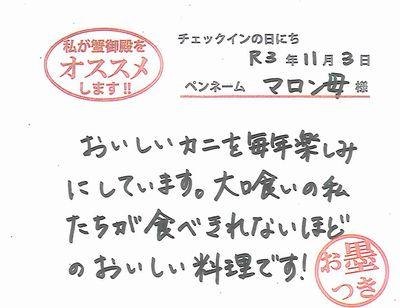 私が蟹御殿を
オススメ
します!!
チェックインの日にち
R3年11月3日
ペンネーム マロン母 様
おいしいカニを毎年楽しみ
にしています。大口喰いの私
たちが食べきれないほど
のおいしい料理です!
お墨
つき